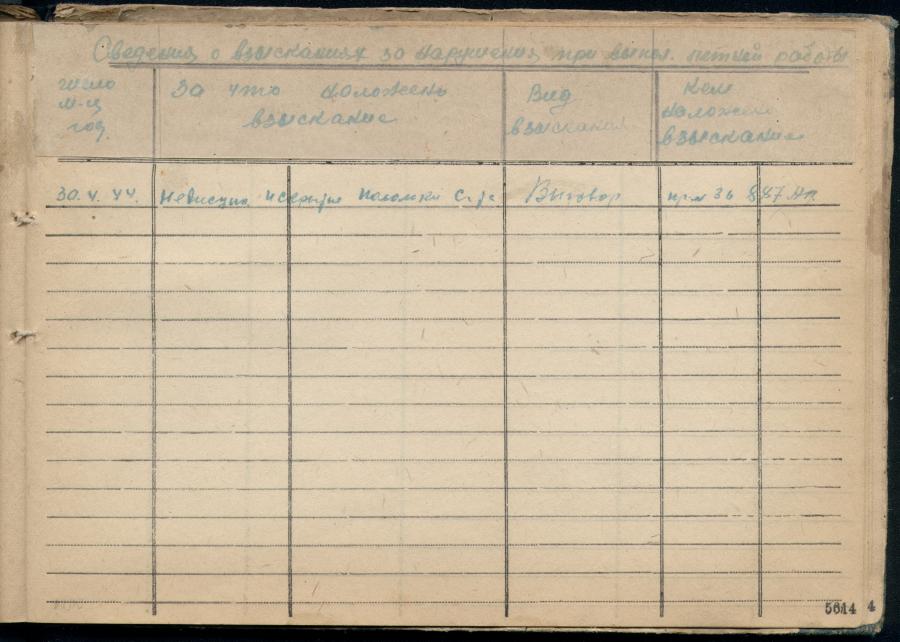 Сведения о взысканиях за нарушения при выпол. летной работы
число
м-ц
год.
За что наложень
взыскание
Вид
взыскания
Кем
наложено
взыскание
30.V.44. Недисцип. и поломки с-та Выговор пр-м 36 887 АП
5614 4